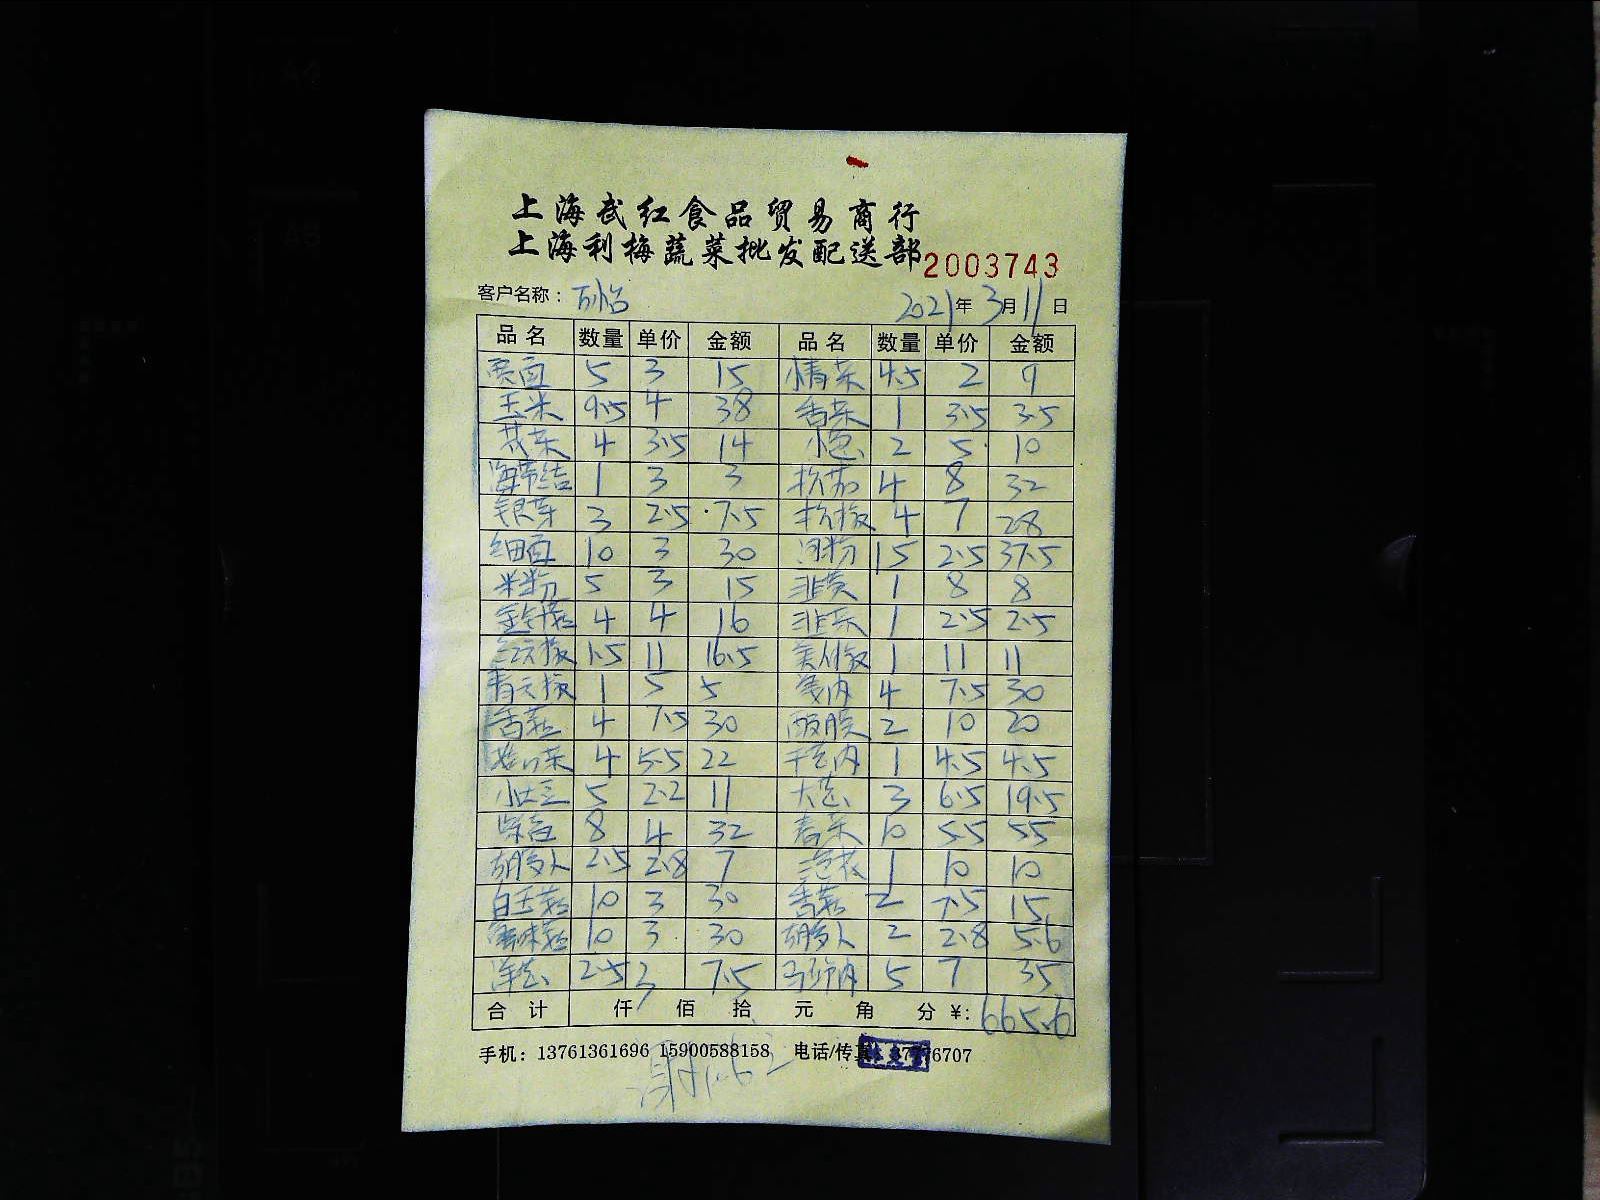 上海武红食品贸易商行
上海利梅蔬菜批发配送部 2003743
客户名称: 2021年3月11日
品名 数量 单价 金额 品名 数量 单价 金额
5 3 15 4.5 2 9
玉米 9.5 4 38 香菜 1 3.5 3.5
4 3.5 14 小 2 5 10
海带结 1 3 3 4 8 32
银芽 3 2.5 7.5 4 7 28
细面 10 3 30 河粉 15 2.5 37.5
米粉 5 3 15 韭黄 1 8 8
金针菇 4 4 16 韭菜 1 2.5 2.5
红尖椒 1.5 11 16.5 美人椒 1 11 11
青尖椒 1 5 5 4 7.5 30
香菇 4 7.5 30 2 10 20
4 5.5 22 1 4.5 4.5
小土豆 5 2.2 11 大葱 3 6.5 19.5
8 4 32 10 5.5 55
胡萝卜 2.5 2.8 7 1 10 10
白玉菇 10 3 30 香菇 2 7.5 15
蟹味菇 10 3 30 胡萝卜 2 2.8 5.6
洋葱 2.5 3 7.5 5 7 35
合计 仟 佰 拾 元 角 分 ¥: 665.6
手机: 13761361696 15900588158 电话/传真: 6707